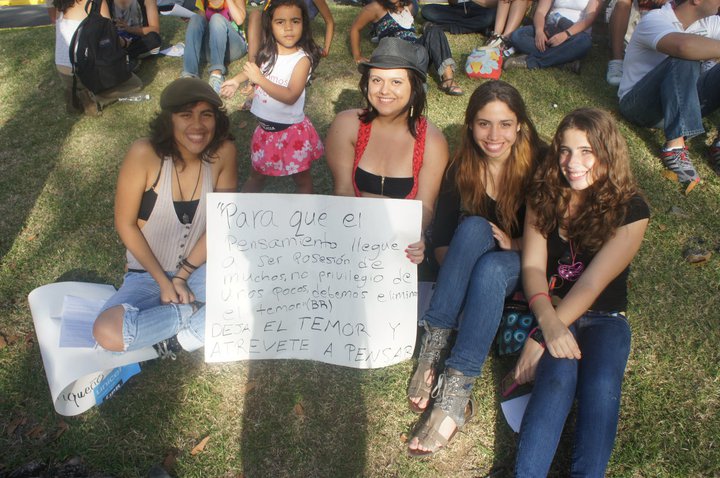 "Para que el
Pensamiento llegue
a ser posesión de
muchos, no privilegio de
unos pocos, debemos eliminar
el temor" (BR)
DEJA EL TEMOR Y
ATREVETE A PENSAR
¡queire